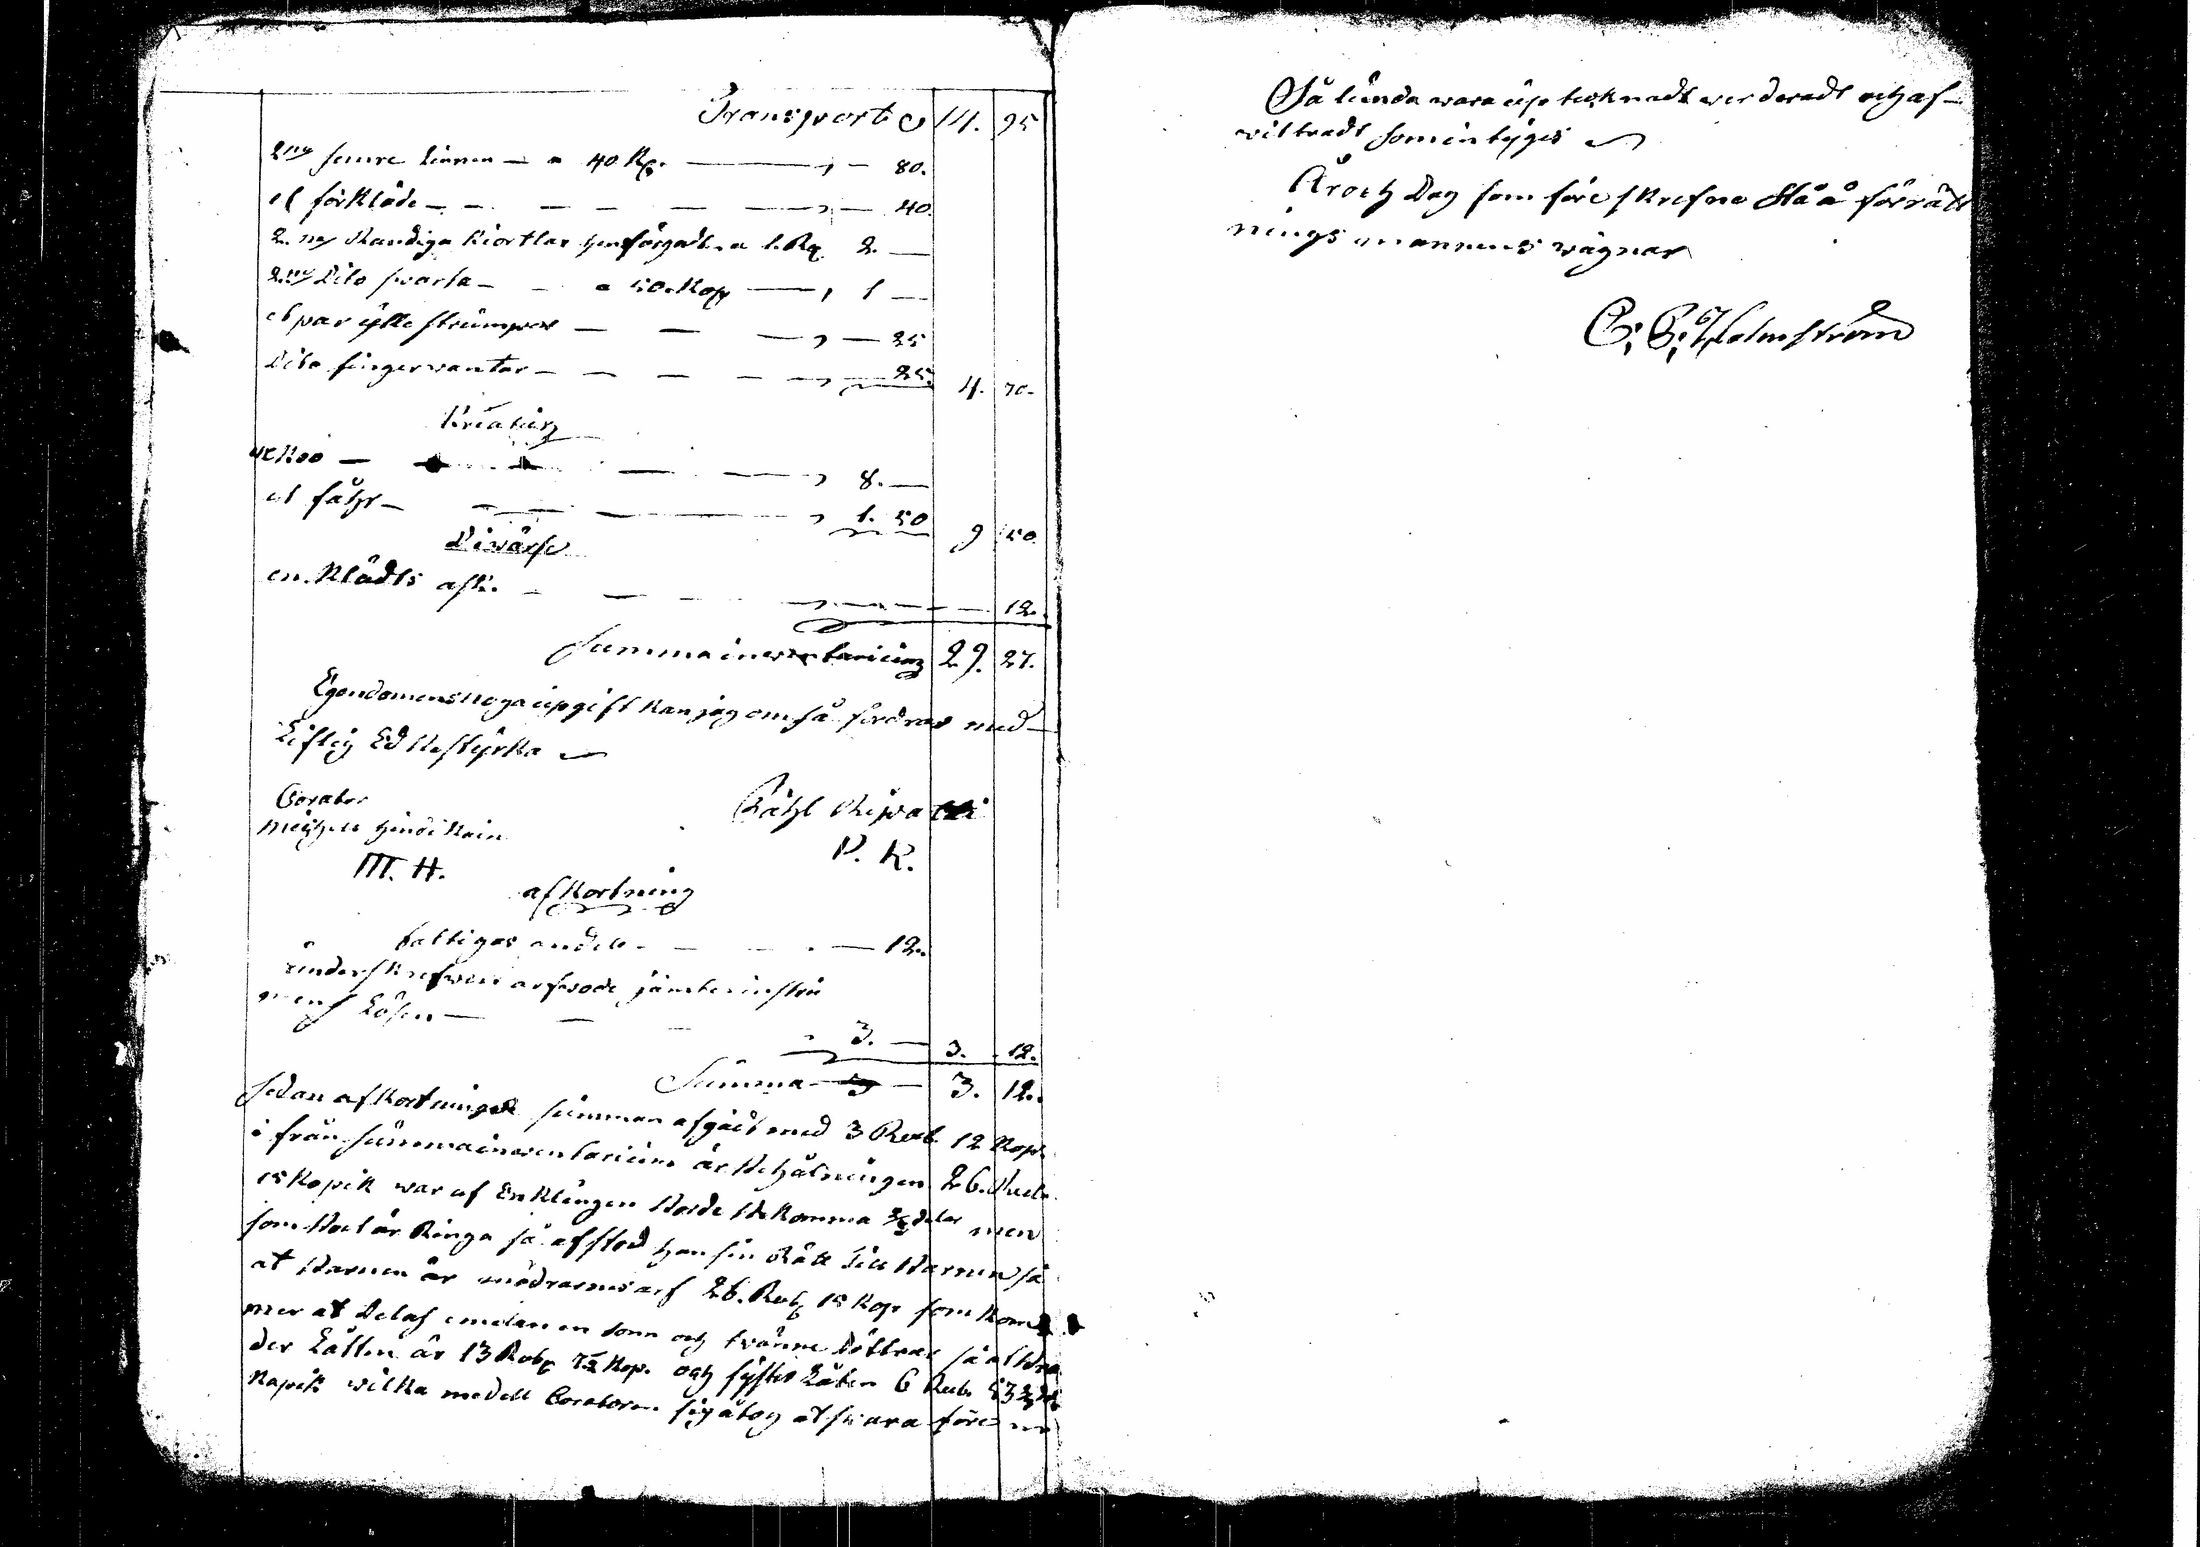 Transport 14. 95
2ne semre Linnen — a 40 Kp. — 80.
et förkläde — — 40.
2ne Randiga kiortlar a 1. Rub. 2. —
2ne Dito swarta — a 50. Kop — 1 —
et par ylle strumpor — — 25
Dito fingerwantar — — 25. 4. 70.
Kreatur
en koo — 8. —
et fåhr — 1. 50 9 50.
Diwärse
en Klädts ask. — 12.
Summa inwentarium 29. 27.
Egendomens noga upgift kan jag om så fordras med
Liflig Ed bestyrka
Corator Påhl
M. H. P. K.
afkortning
fattigas andell — 12.
underskrefwen arfwode jämte instru
mens Lösen —
3. — 3. 12.
Summa — 3. 12.
sedan afkortnings summan afgådt med 3 Rub. 12 Kop.
i från summa inwentarium är behålningen 26. Rub.
15 Kopik war af Enklingen borde bekomma delar men
som boet är Ringa så afstod han sin Rätt till barnen så
at barnen är mödrarnes arf 26. Rub. 15 Kop som kom
mer at delas emelan en sonn och twänne döttrar så at bro
der Lätten är 13 Rub. 7½ Kop. och syster Låten 6 Rub. 53
Kopik wilka medell Coratoren sig åtog at swara före
Så lunda wara uptecknadt werderadt och af-
wittradt som intyges
År och Dag som före skrefne Stå å förrätt
nings mannens wägnar
C. G. Holmström